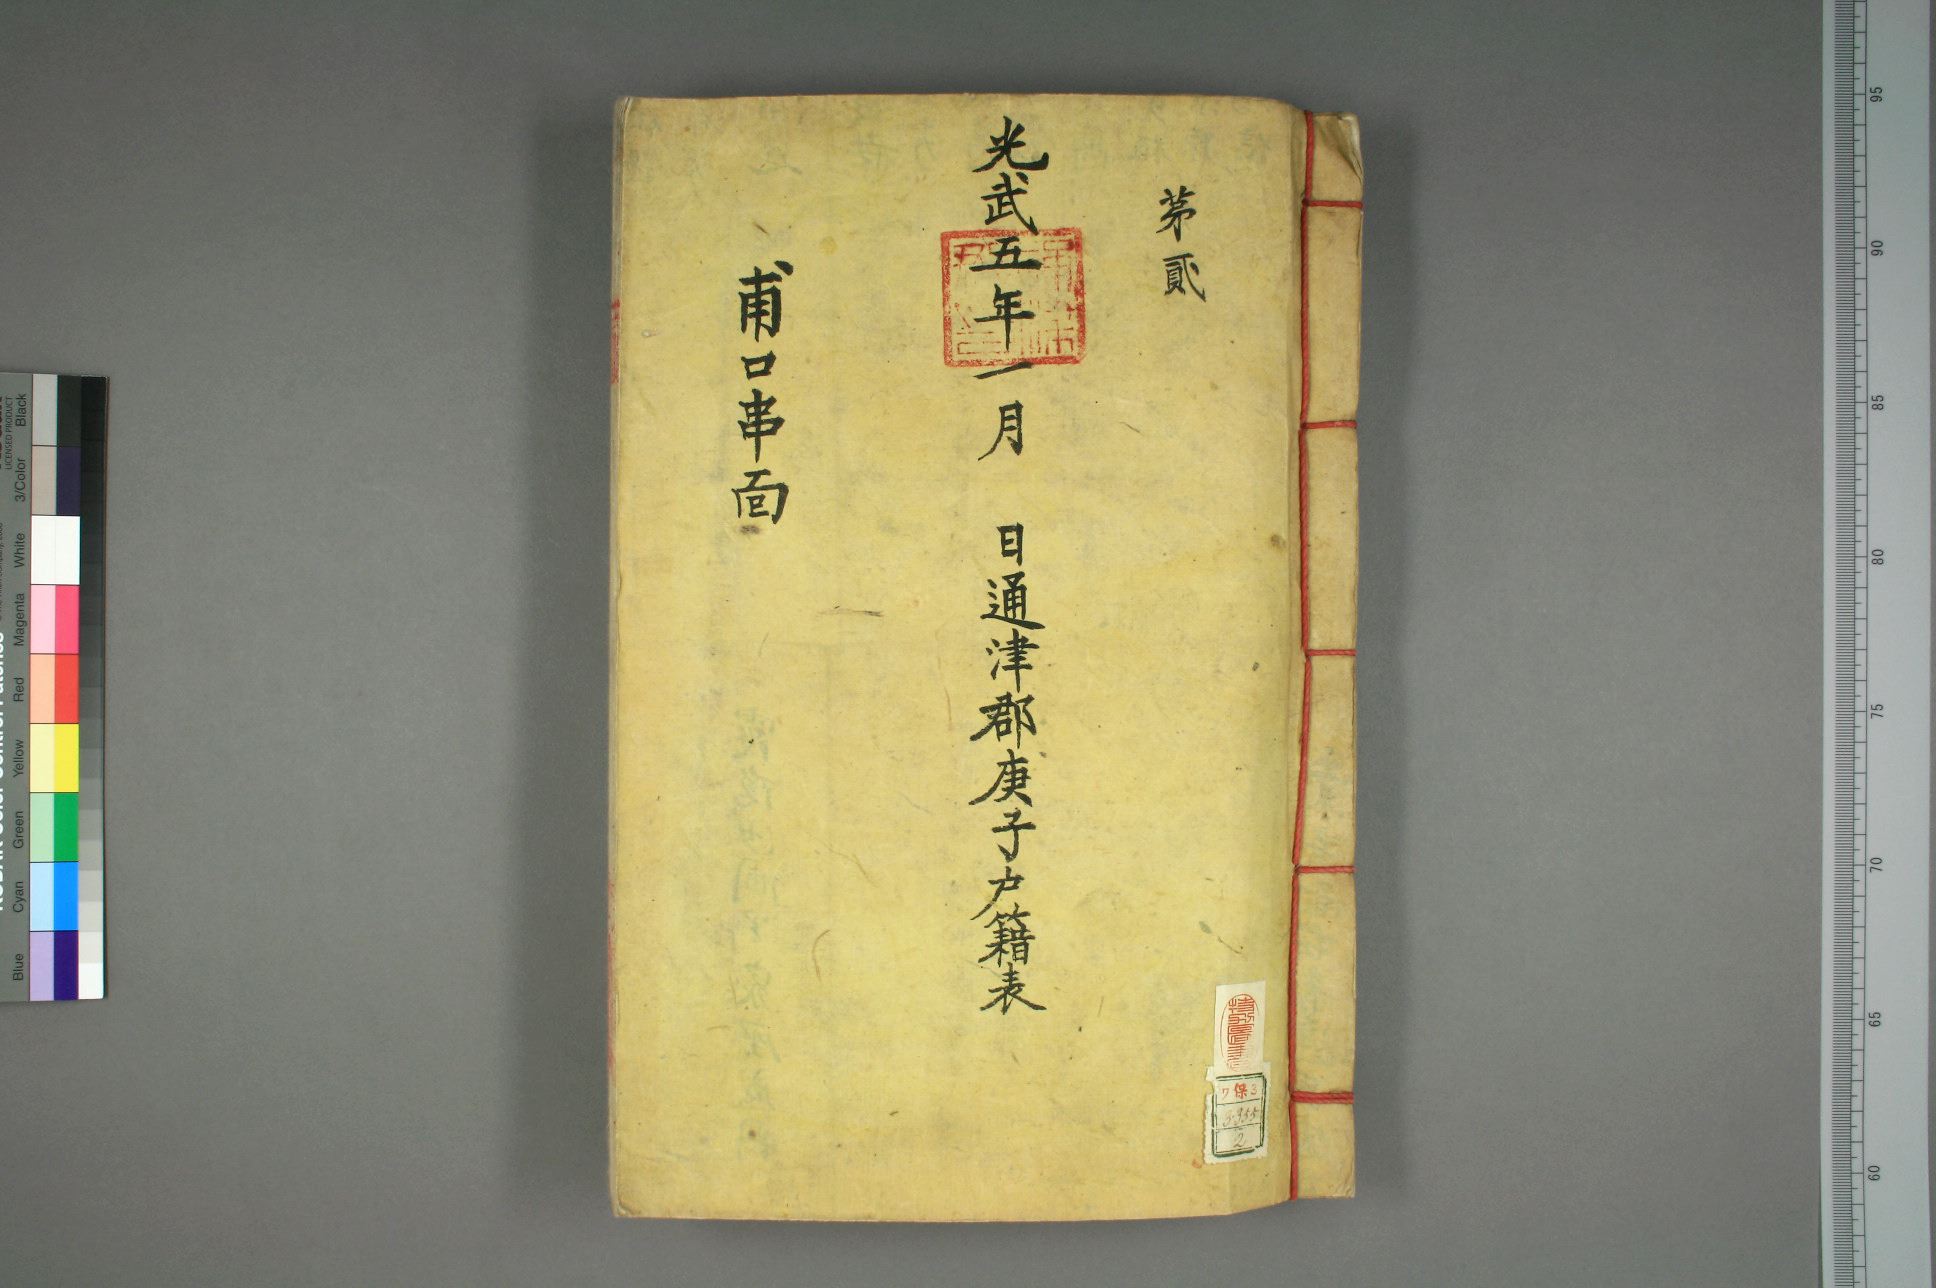 茅貳
光武五年一月　日通津郡庚子户籍表
甫口串面
7保3
3955
2
95
90
85
80
75
70
65
60
LICENSED PRODUCT
Black
3/Color
White
Magenta
Red
Yellow
Green
Cyan
Blue